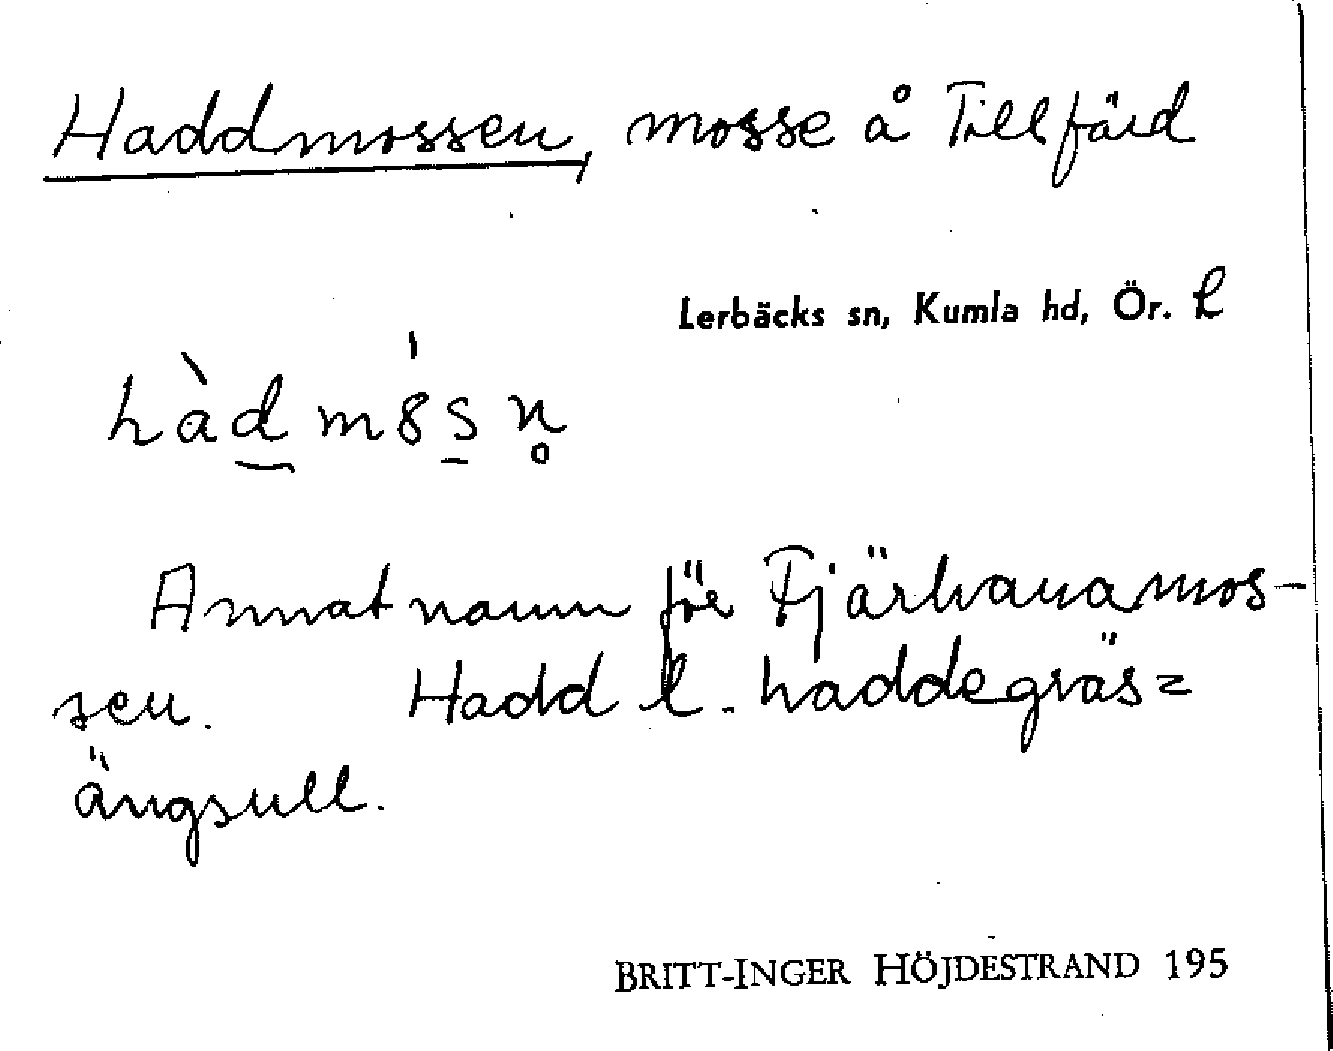 Haddmossen, mosse å Tillfärd
Lerbäcks sn, Kumla hd, Ör. L
hàdmósn̥
Annat namn för Fjärhanamos-
sen. Hadd l. haddegräs =
ängsull.
BRITT-INGER HÖJDESTRAND 195